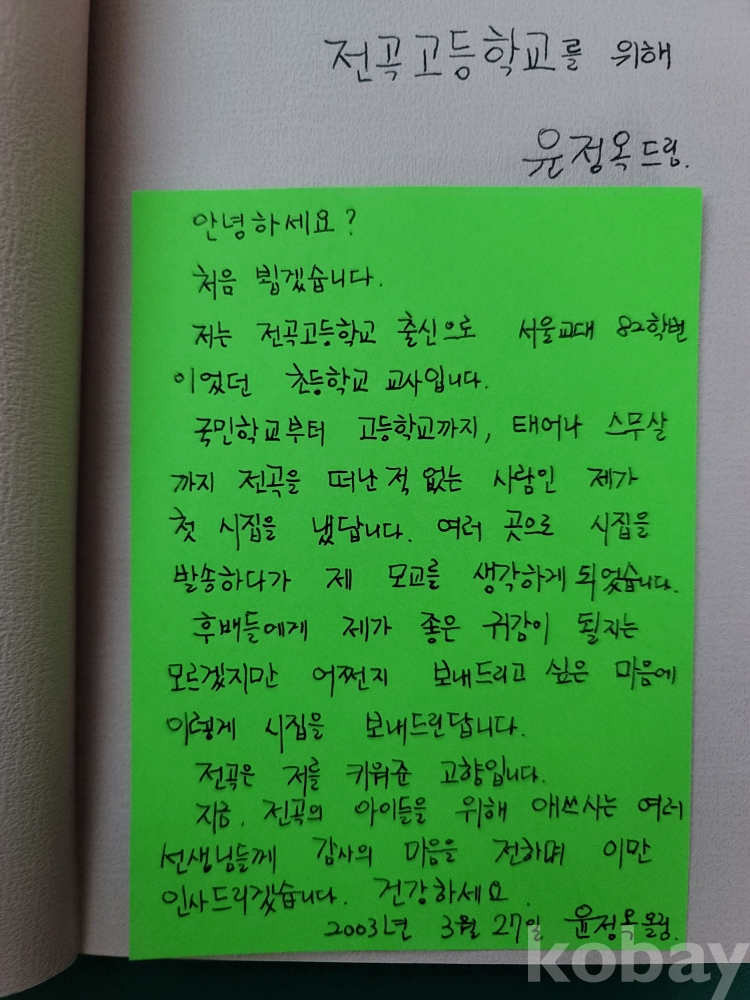 전곡고등학교를 위해
윤정옥드림.
안녕하세요?
처음 뵙겠습니다.
저는 전곡고등학교 출신으로 서울교대 82학번
이었던 초등학교 교사입니다.
국민학교부터 고등학교까지, 태어나 스무살
까지 전곡을 떠난 적 없는 사람인 제가
첫 시집을 냈답니다. 여러 곳으로 시집을
발송하다가 제 모교를 생각하게 되었습니다.
후배들에게 제가 좋은 귀감이 될지는
모르겠지만 어쩐지 보내드리고 싶은 마음에
이렇게 시집을 보내드린답니다.
전곡은 저를 키워준 고향입니다.
지금, 전곡의 아이들을 위해 애쓰시는 여러
선생님들께 감사의 마음을 전하며 이만
인사드리겠습니다. 건강하세요.
2003년 3월 27일 윤정옥올림.
kobay